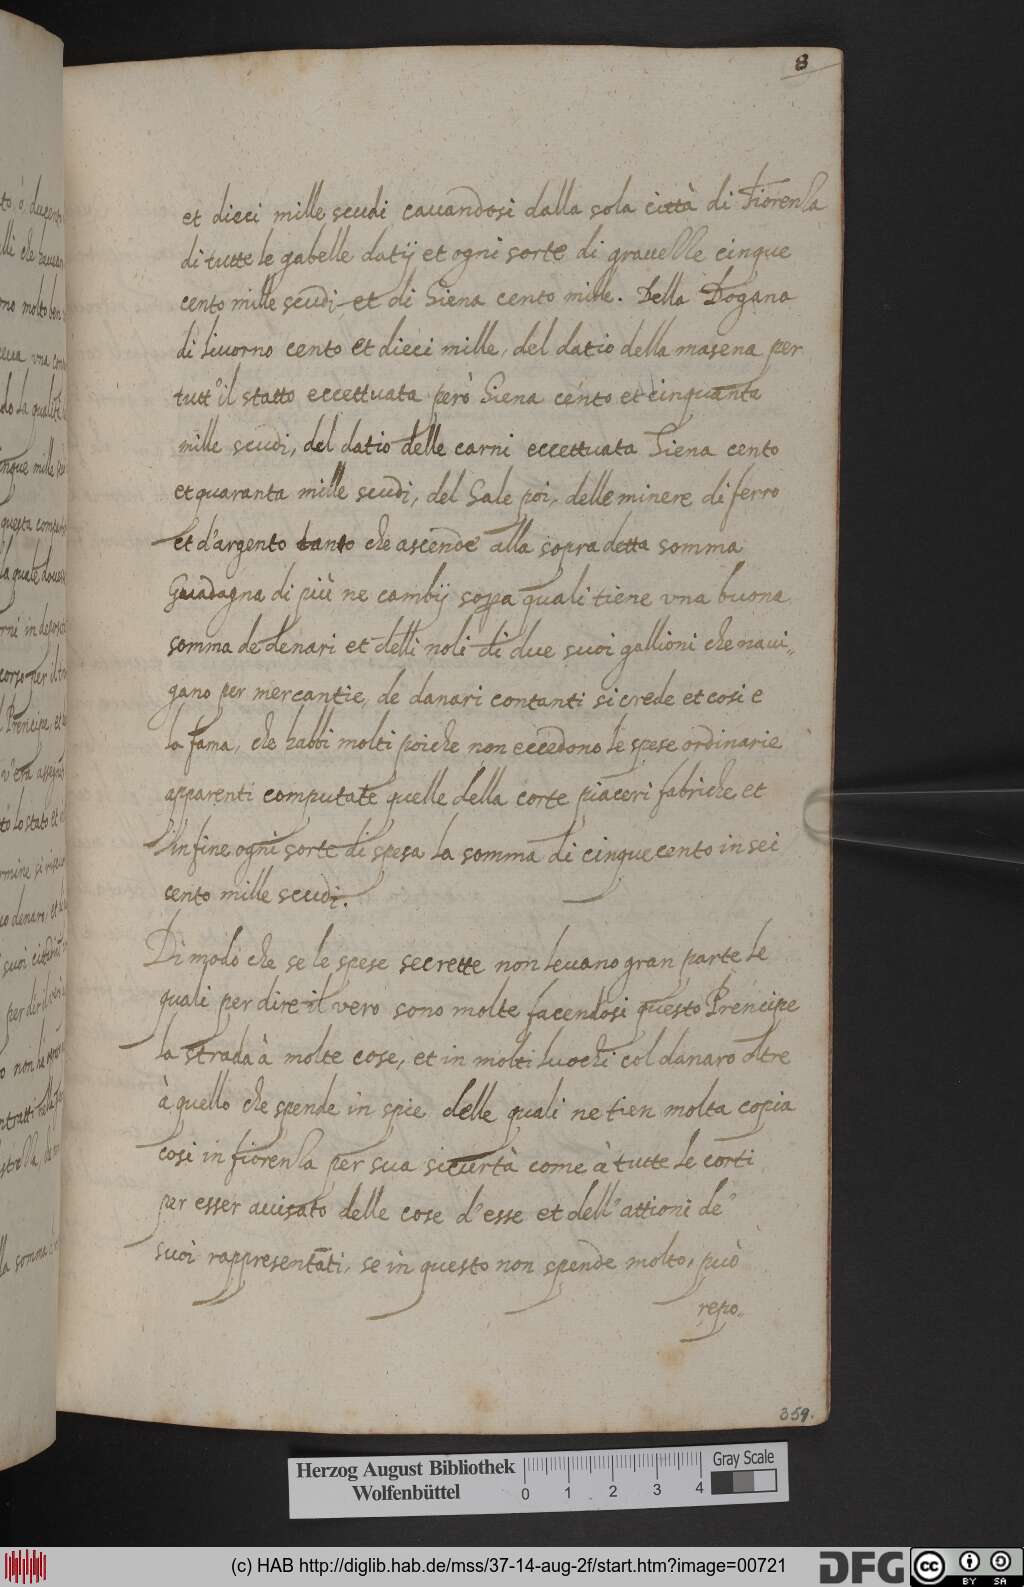 8
et dieci mille scudi cauandosi dalla sola città di Fiorenza
di tutte le gabelle datij et ogni sorte di grauezze cinque
cento mille scudi et di Siena cento mille. Della Dogana
di Liuorno cento et dieci mille, del datio della masena per
tutt'il statto eccettuata però Siena cento et cinquanta
mille scudi, del datio delle carni eccettuata Siena cento
et quaranta mille scudi, del Sale poi, delle minere di ferro
et d'argento tanto che ascende alla sopra detta somma
Guadagna di più ne cambij sopra quali tiene vna buona
somma de denari et delli noli di due suoi gallioni che naui„
gano per mercantie, de danari contanti si crede et cosi e
la fama, che habbi molti poiche non eccedono le spese ordinarie
apparenti computate quelle della corte piaceri fabriche et
in fine ogni sorte di spesa la somma di cinquecento in sei
cento mille scudi.
Di modo che se le spese secrette non leuano gran parte le
quali per dire il vero sono molte facendosi questo Prencipe
la strada à molte cose, et in molti luochi col danaro oltre
à quello che spende in spie delle quali ne tien molta copia
cosi in fiorenza per sua sicurtà come à tutte le corti
per esser auisato delle cose d'esse et dell'attioni de'
suoi rappresentati, se in questo non spende molto, può
repo„
359.
Herzog August Bibliothek
Wolfenbüttel
0 1 2 3 4
Gray Scale
(c) HAB http://diglib.hab.de/mss/37-14-aug-2f/start.htm?image=00721
DFG
cc BY SA